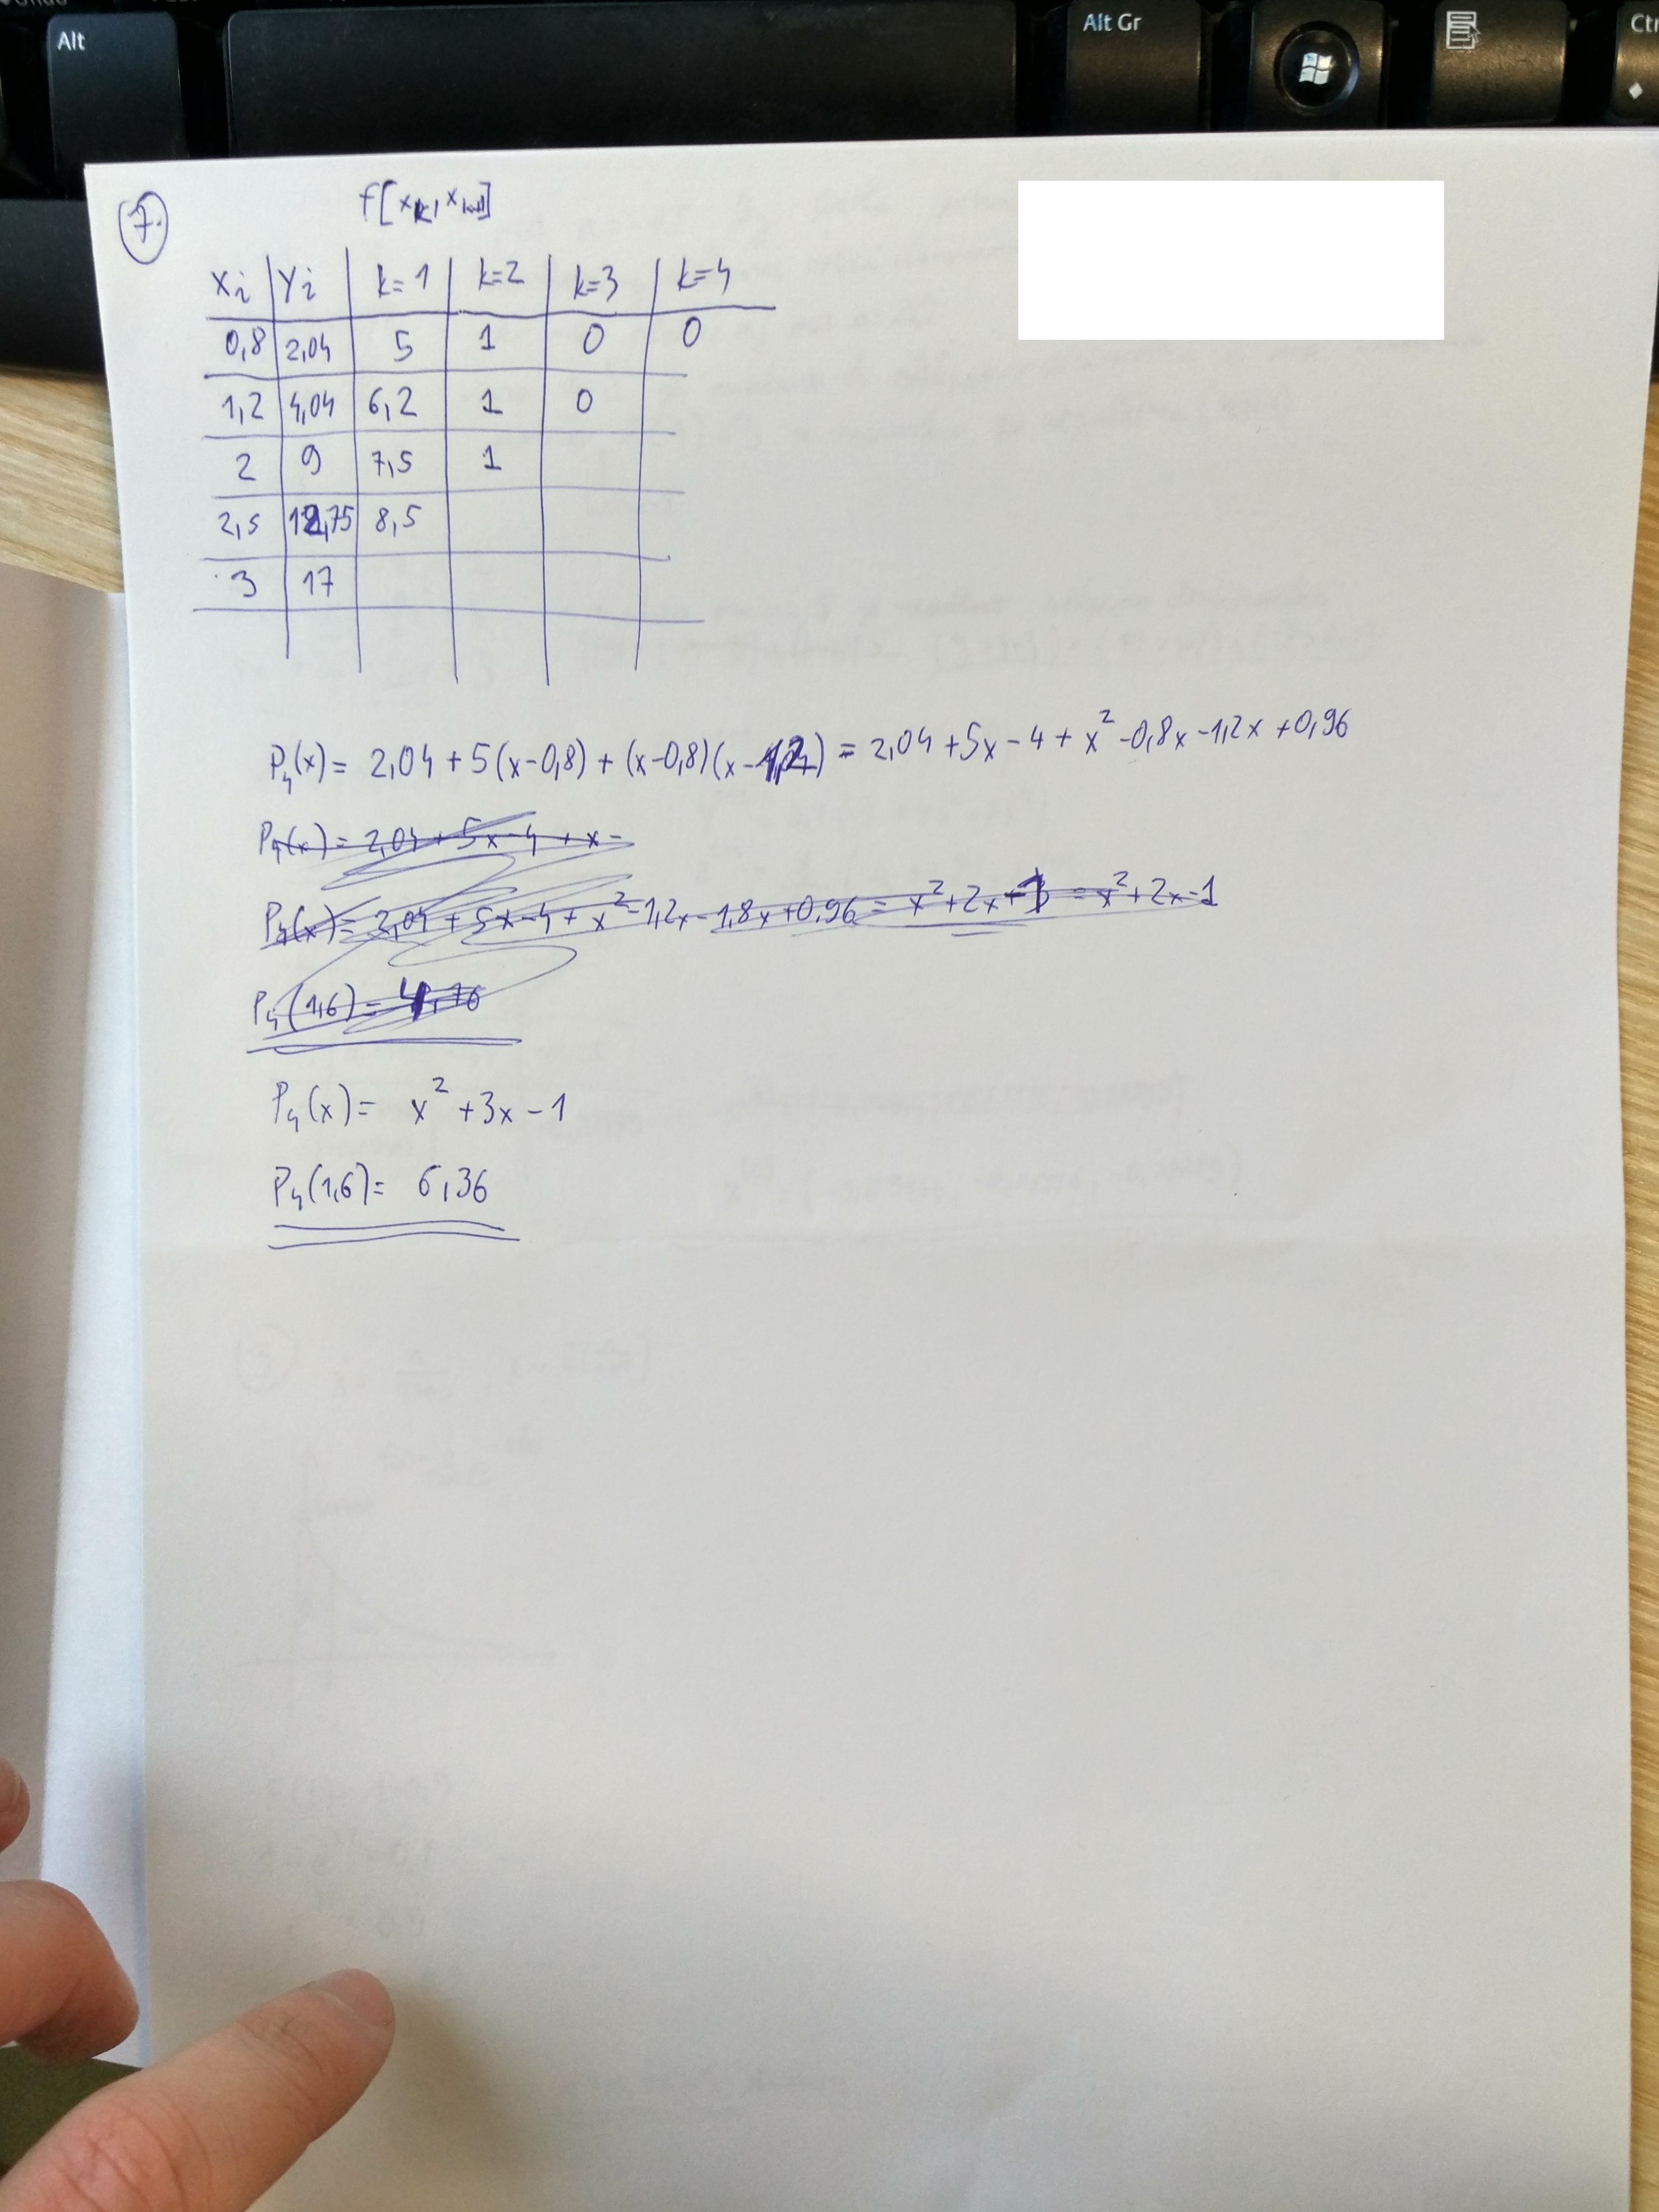 Alt
Alt Gr
7.
f[xk, xk+1]
xi yi k=1 k=2 k=3 k=4
0,8 2,04 5 1 0 0
1,2 4,04 6,2 1 0
2 9 7,5 1
2,5 12,75 8,5
3 17
P4(x) = 2,04 + 5(x-0,8) + (x-0,8)(x-1,2) = 2,04 + 5x - 4 + x² - 0,8x - 1,2x + 0,96
P4(x) = 2,04 + 5x - 4 + x -
P4(x) = 2,04 + 5x - 4 + x² - 1,2x - 1,8x + 0,96 = x² + 2x - 1 = x² + 2x - 1
P4(1,6) = 4,76
P4(x) = x² + 3x - 1
P4(1,6) = 6,36